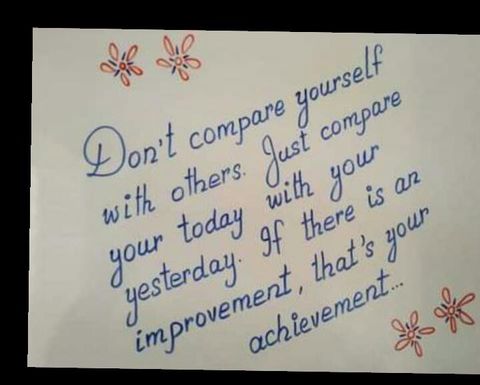 Don't compare yourself
with others. Just compare
your today with your
yesterday. If there is an
improvement, that's your
achievement...